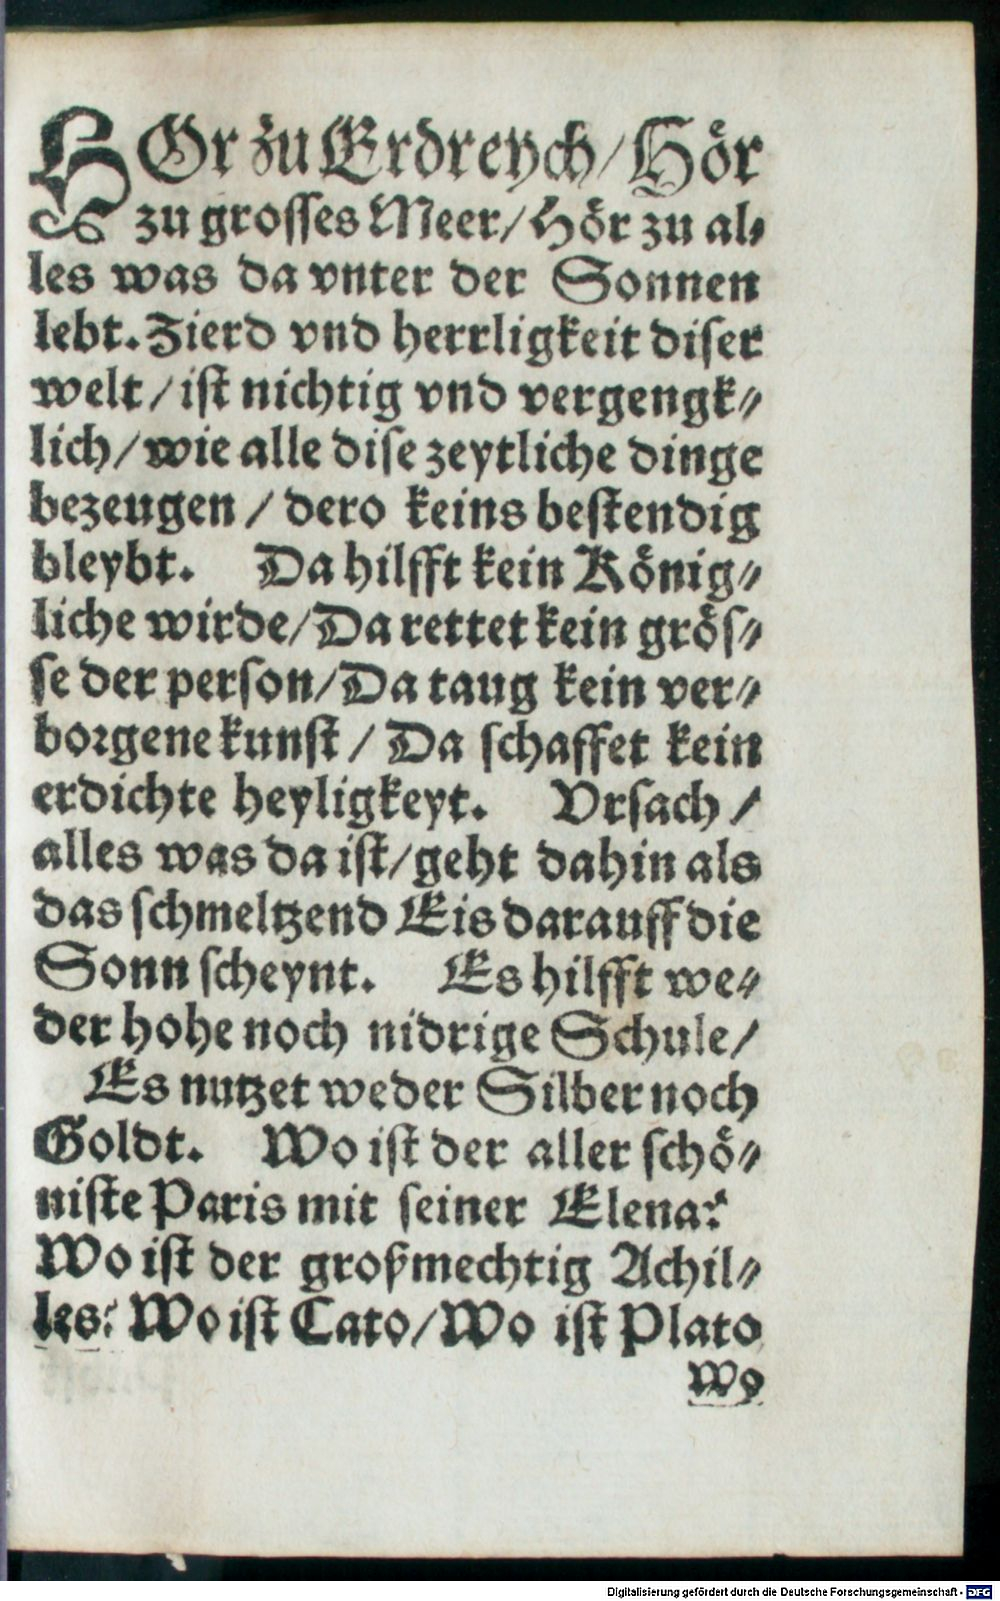 HOr zu Erdreych/Hör
zu grosses Meer/Hör zu al⸗
les was da vnter der Sonnen
lebt. Zierd vnd herrligkeit diser
welt/ist nichtig vnd vergengk⸗
lich/wie alle dise zeytliche dinge
bezeugen/dero keins bestendig
bleybt. Da hilfft kein König⸗
liche wirde/Da rettet kein grös⸗
se der person/Da taug kein ver⸗
borgene kunst/Da schaffet kein
erdichte heyligkeyt. Vrsach/
alles was da ist/geht dahin als
das schmeltzend Eis darauff die
Sonn scheynt. Es hilfft we⸗
der hohe noch nidrige Schule/
Es nutzet weder Silber noch
Goldt. Wo ist der aller schö⸗
niste Paris mit seiner Elena?
Wo ist der großmechtig Achil⸗
les? Wo ist Cato/Wo ist Plato
Wo
Digitalisierung gefördert durch die Deutsche Forschungsgemeinschaft - DFG